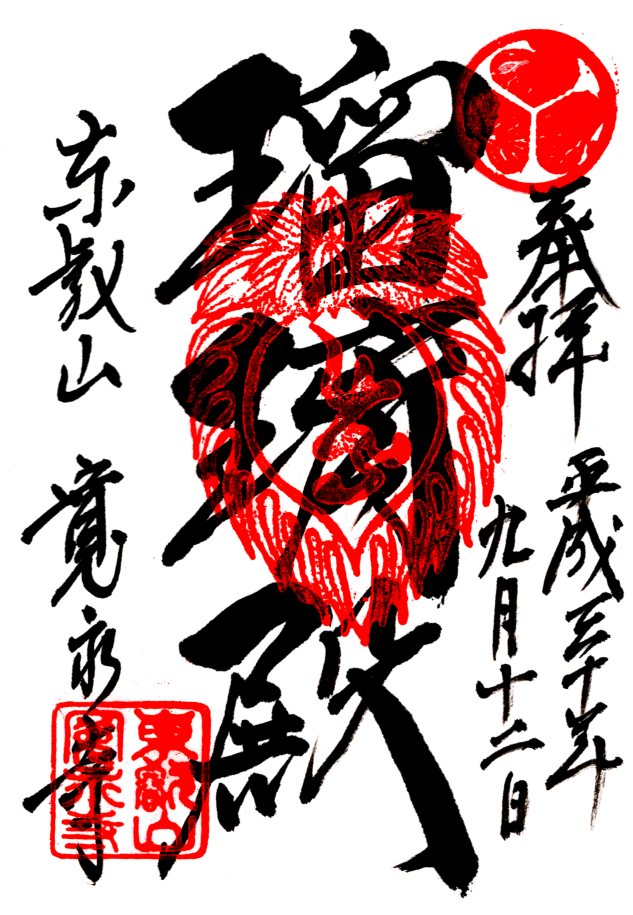 奉拝
平成三十年
九月十二日
瑠璃殿
東叡山 寛永寺
東叡山
寛永寺